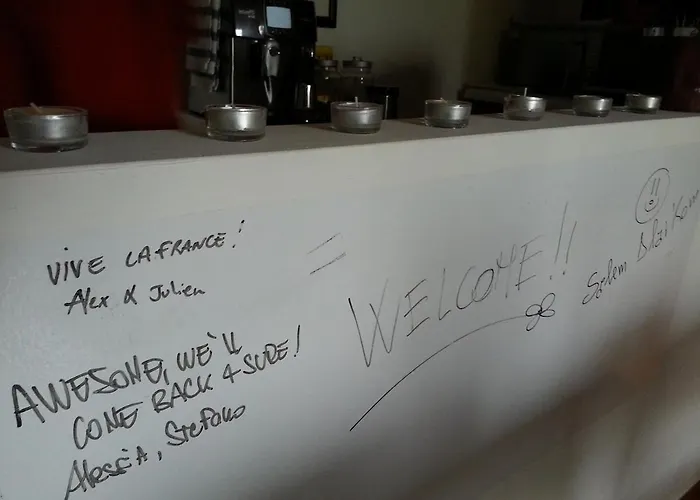 VIVE LA FRANCE!
Alex & Julien
AWESOME, WE'LL
COME BACK 4 SURE!
Alessia, Stefano
= WELCOME!!
Salem